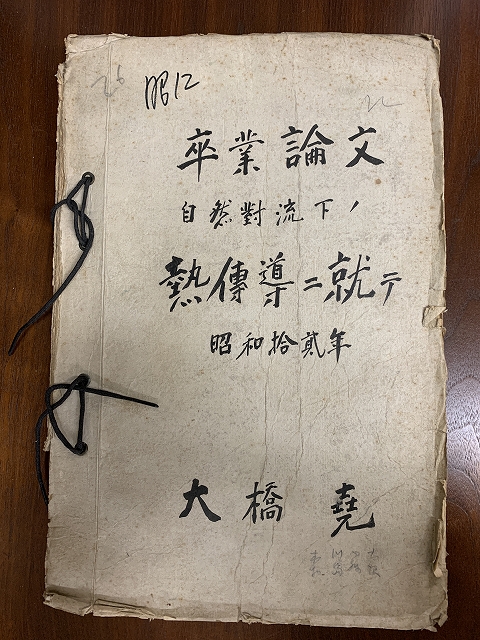 昭12
卒業論文
自然對流下ノ
熱傳導ニ就テ
昭和拾貳年
大橋 堯